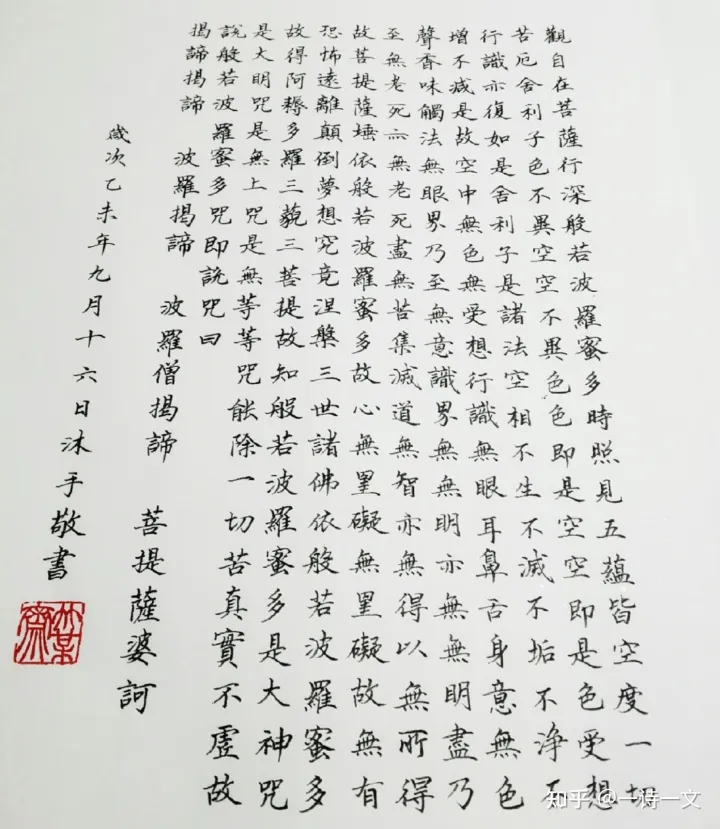 觀自在菩薩行深般若波羅蜜多時照見五蘊皆空度一切
苦厄舍利子色不異空空不異色色即是空空即是色受想
行識亦復如是舍利子是諸法空相不生不滅不垢不浄不
增不減是故空中無色無受想行識無眼耳鼻舌身意無色
聲香味觸法無眼界乃至無意識界無無明亦無無明盡乃
至無老死亦無老死盡無苦集滅道無智亦無得以無所得
故菩提薩埵依般若波羅蜜多故心無罣礙無罣礙故無有
恐怖遠離顛倒夢想究竟涅槃三世諸佛依般若波羅蜜多
故得阿耨多羅三藐三菩提故知般若波羅蜜多是大神咒
是大明咒是無上咒是無等等咒能除一切苦真實不虛故
說般若波羅蜜多咒即說咒曰
揭諦揭諦 波羅揭諦 波羅僧揭諦 菩提薩婆訶
歲次乙未年九月十六日沐手敬書
知乎 @一诗一文